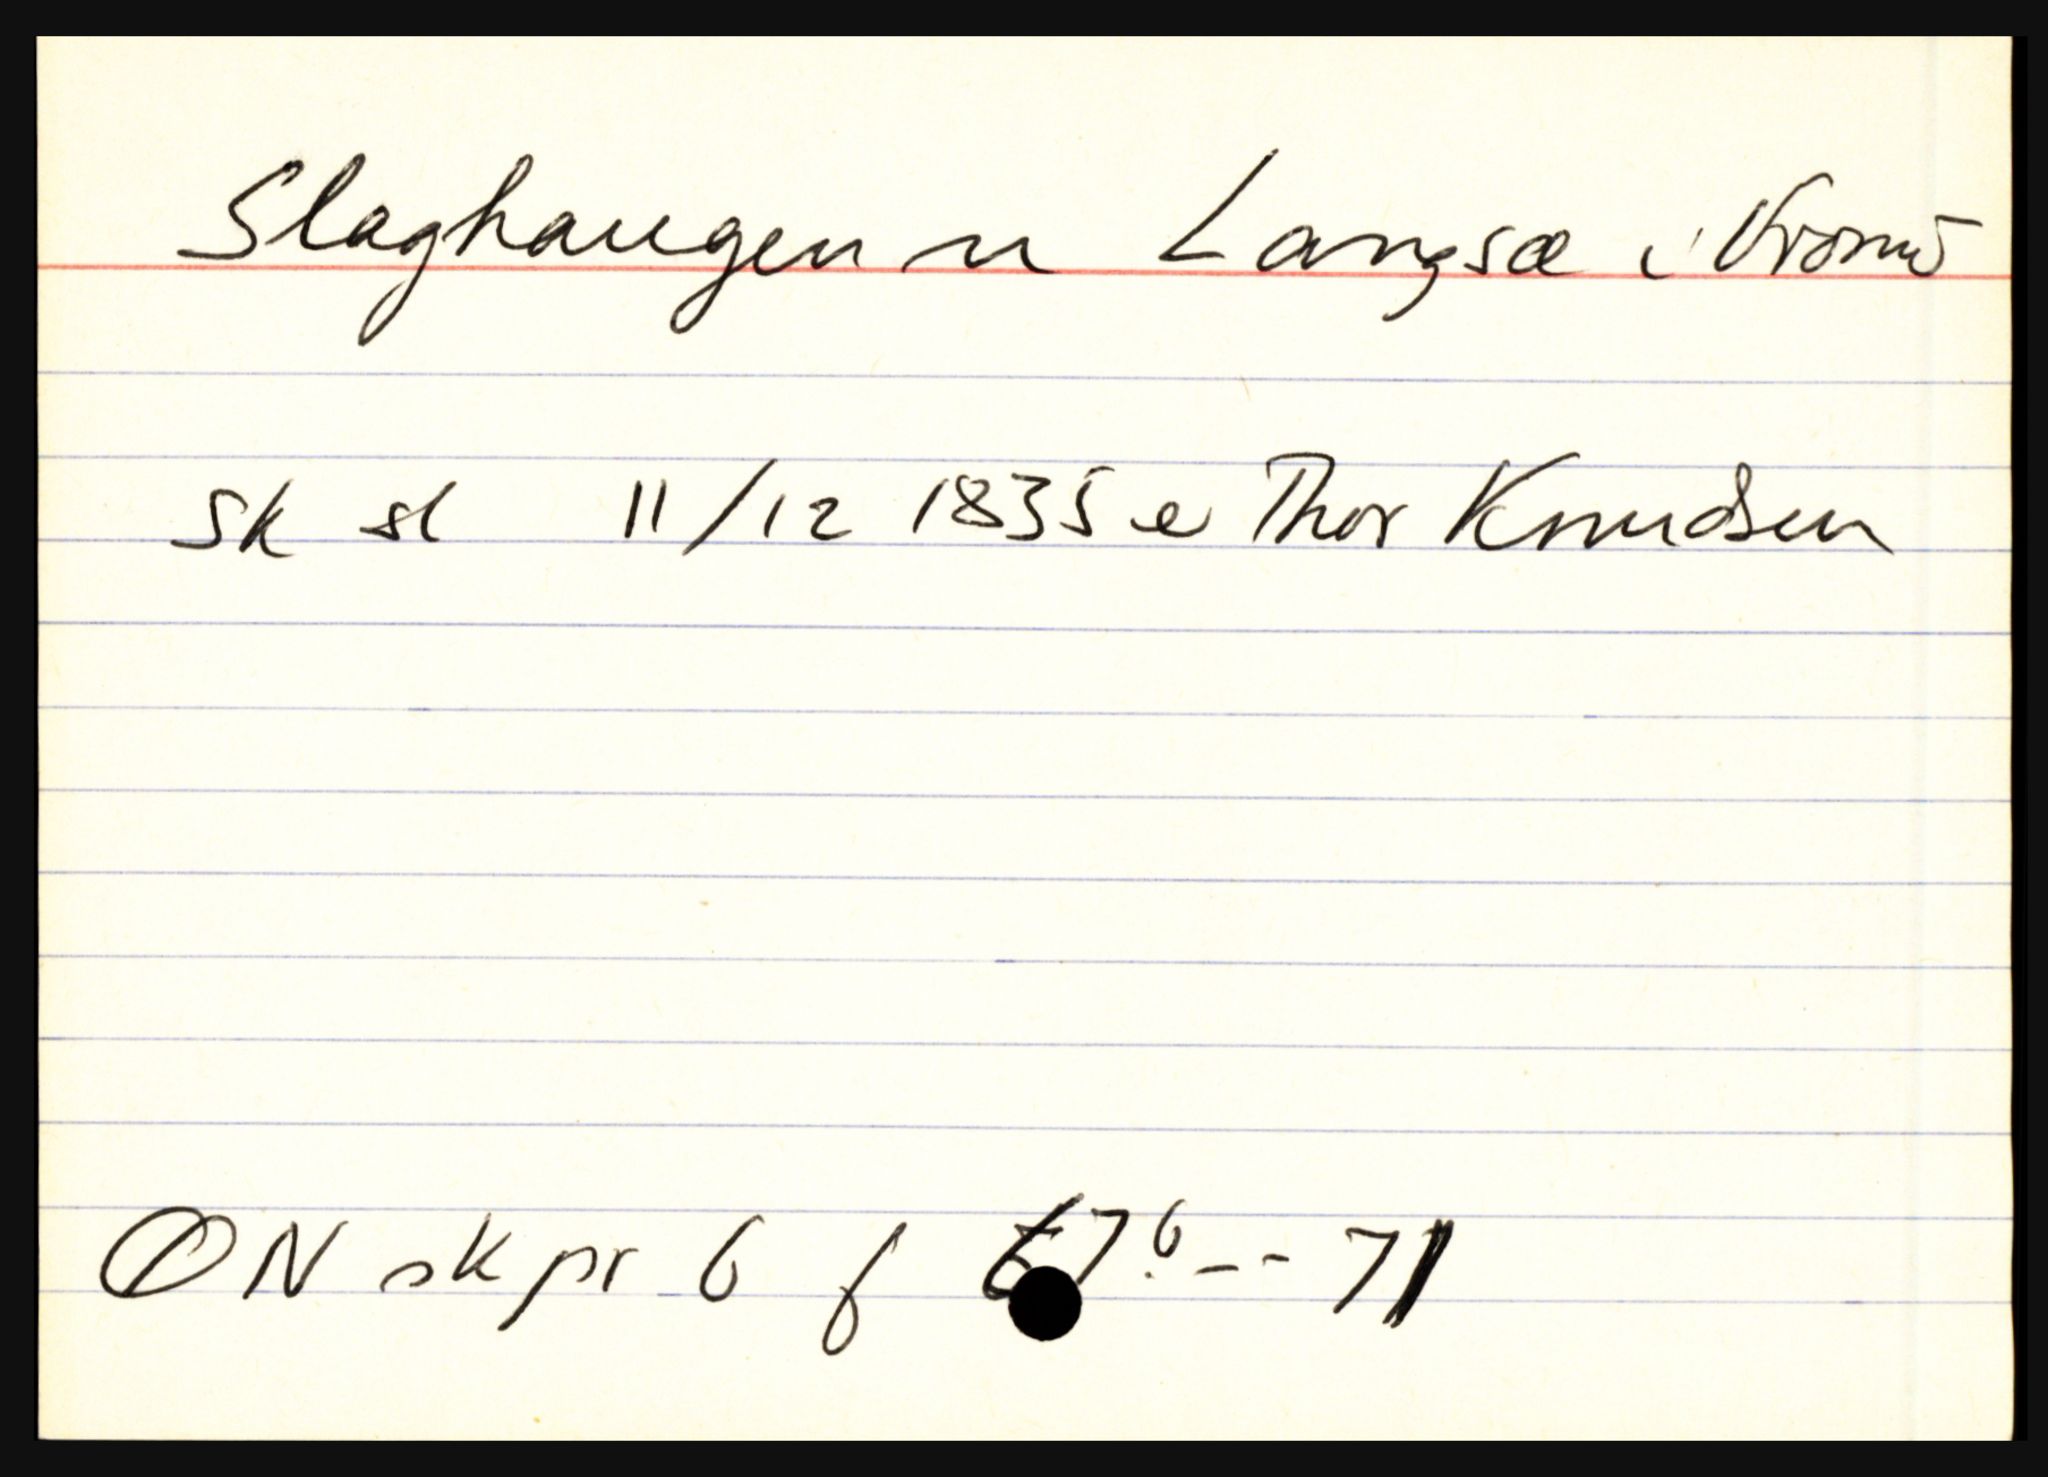 Slaghaugen u Langsæ i Tromø
sk sl 11/12 1835 e Thor Knudsen
ØN skpr 6 f 67b -- 71